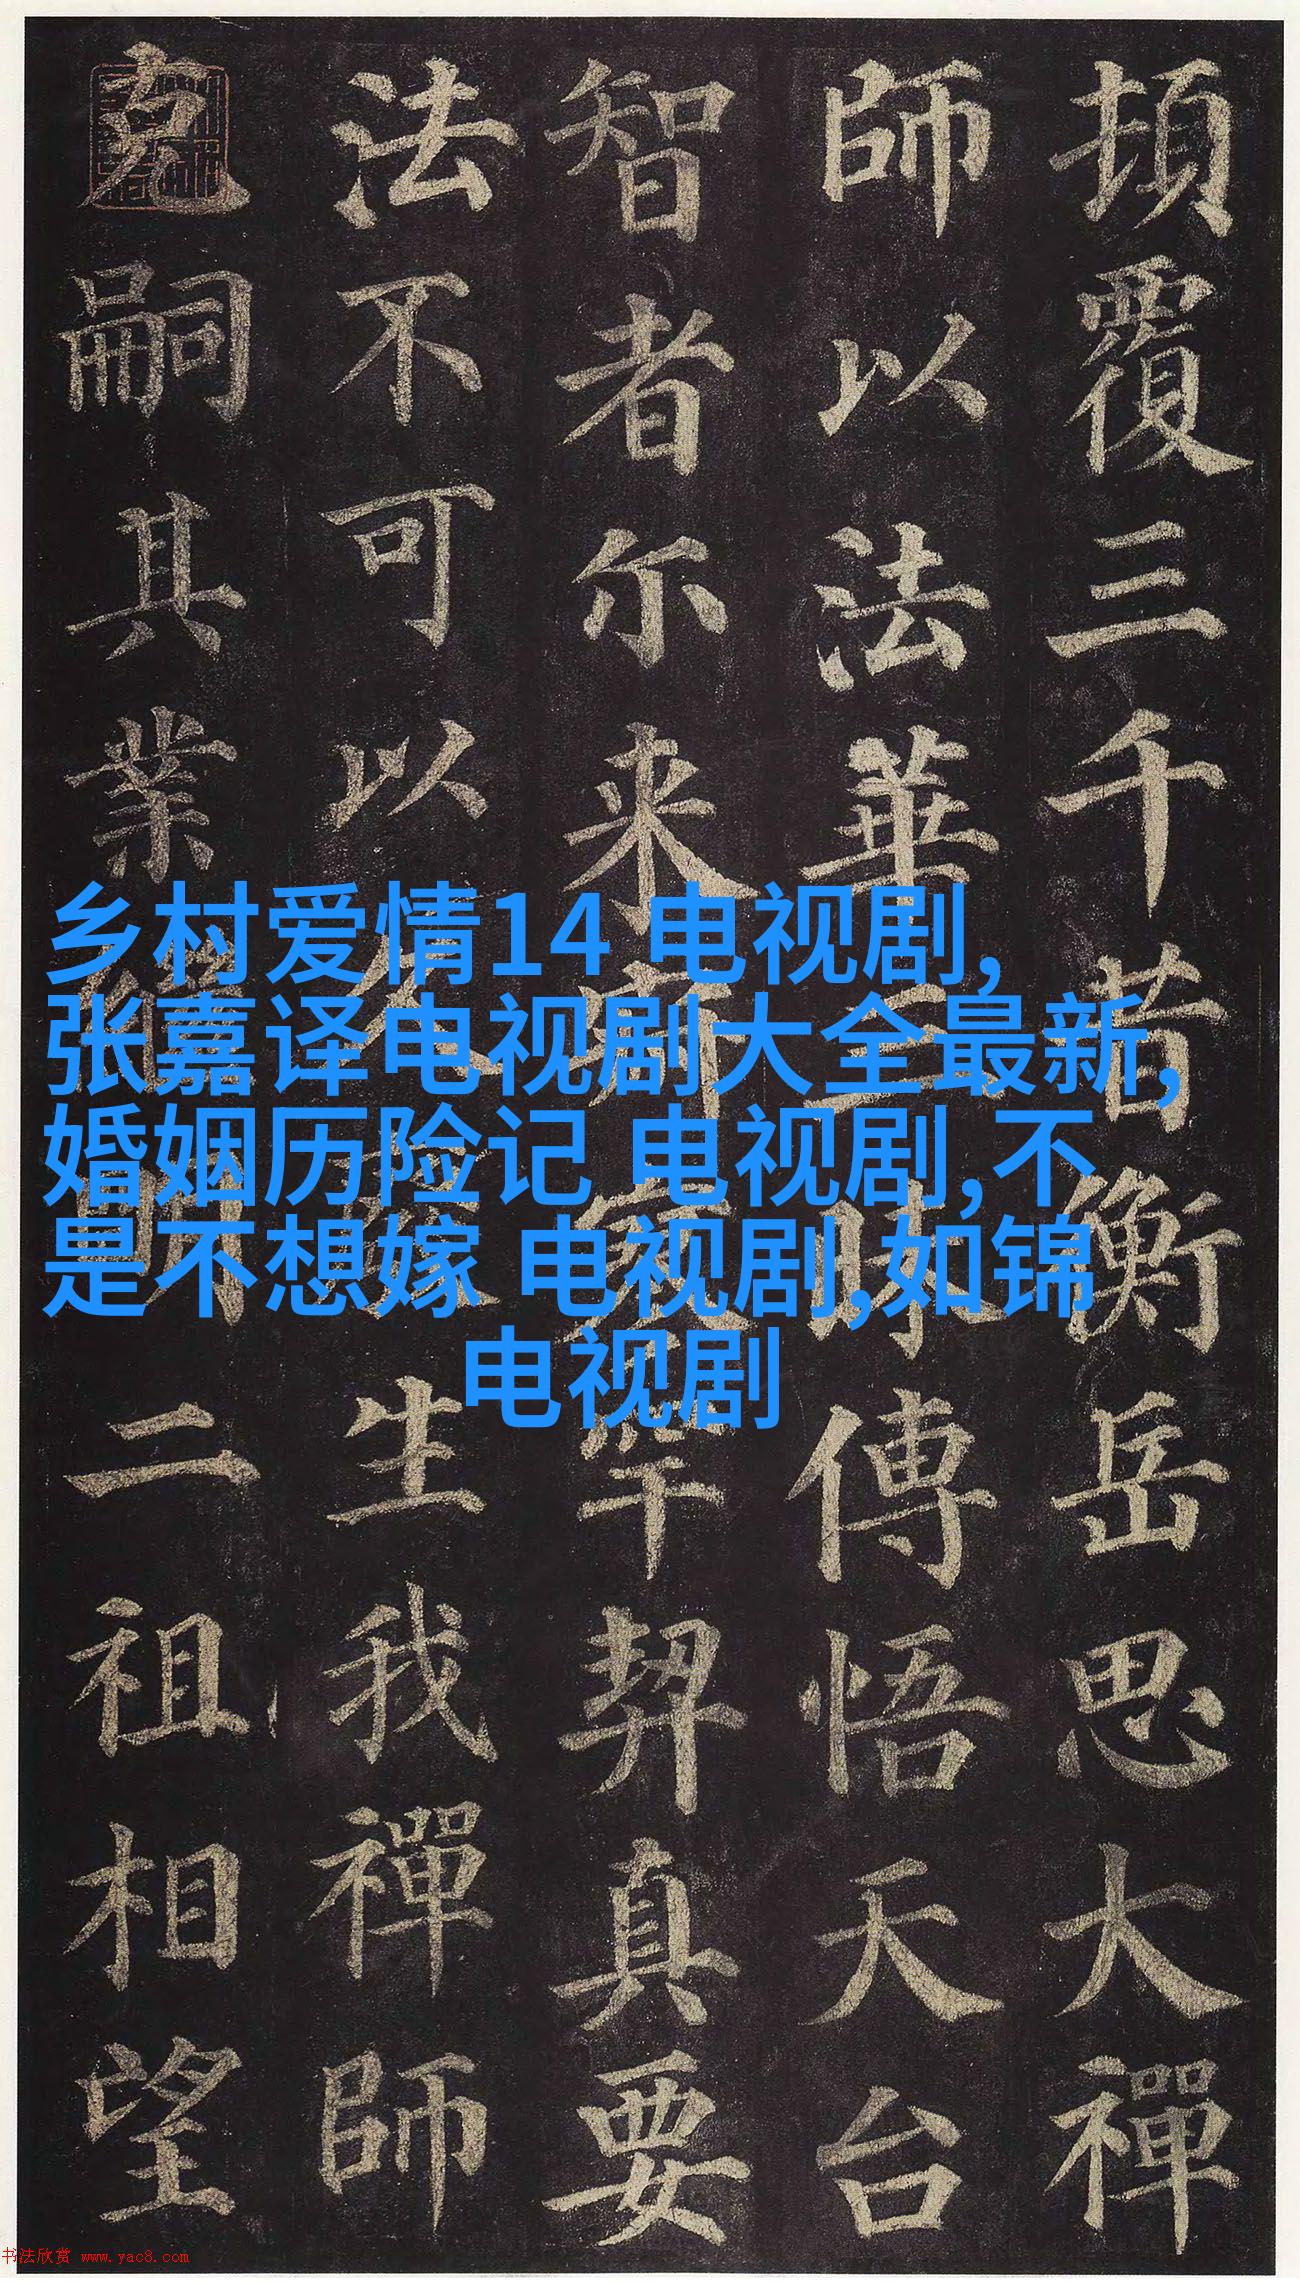 頂覆三千昔衡岳思大禪
師以法華三昧傳悟天台
智者尓来罕契真要
法不可以生我禪師
克嗣其業明二祖相望
乡村爱情14 电视剧,
张嘉译电视剧大全最新,
婚姻历险记 电视剧,不
是不想嫁 电视剧,如锦
电视剧
书法欣赏 www.yac8.com